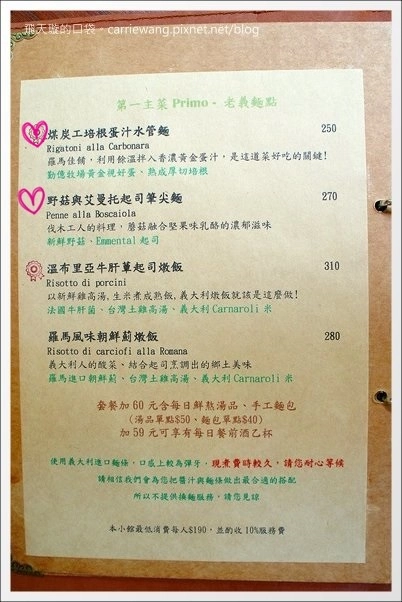 飛天璇的口袋。carriewang.pixnet.net/blog
第一主菜 Primo - 老義麵點
煤炭工培根蛋汁水管麵 250
Rigatoni alla Carbonara
羅馬佳餚，利用餘溫拌入香濃黃金蛋汁，是這道菜好吃的關鍵!
勤億牧場黃金視好蛋、熟成厚切培根
野菇與艾曼托起司筆尖麵 270
Penne alla Boscaiola
伐木工人的料理，蘑菇融合堅果味乳酪的濃郁滋味
新鮮野菇、Emmental 起司
溫布里亞牛肝蕈起司燉飯 310
Risotto di porcini
以新鮮雞高湯,生米煮成熟飯,義大利燉飯就該是這麼做!
法國牛肝菌、台灣土雞高湯、義大利 Carnaroli 米
羅馬風味朝鮮薊燉飯 280
Risotto di carciofi alla Romana
義大利人的酸菜、結合起司烹調出的鄉土美味
羅馬進口朝鮮薊、台灣土雞高湯、義大利 Carnaroli 米
套餐加 60 元含每日鮮熬湯品、手工麵包
(湯品單點$50、麵包單點$40)
加 59 元可享有每日餐前酒乙杯
使用義大利進口麵條，口感上較為彈牙，現煮費時較久，請您耐心等候
請相信我們會為您把醬汁與麵條做出最合適的搭配
所以不提供換麵服務，請您見諒
本小館最低消費每人$190，並酌收 10%服務費